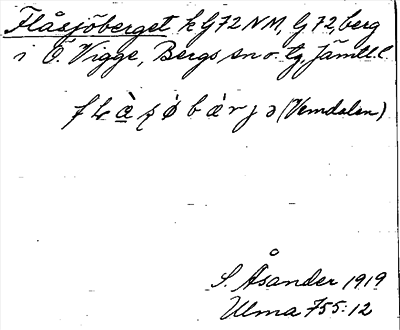 Flåsjöberget k G72 NM, G72, berg
i Ö. Vigge, Bergs sn o. tg, Jämtl. l.
(Vemdalen)
S. Åsander 1919
Ulma 755:12